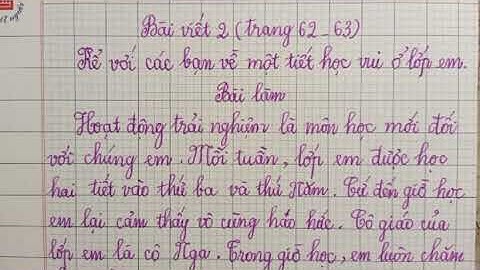 Bài viết 2 (trang 62 - 63)
Kể với các bạn về một tiết học vui ở lớp em.
Bài làm
Hoạt động trải nghiệm là môn học mới đối
với chúng em. Mỗi tuần, lớp em được học
hai tiết vào thứ ba và thứ Năm. Cứ đến giờ học
em lại cảm thấy vô cùng háo hức. Cô giáo của
lớp em là cô Nga. Trong giờ học, em luôn chăm